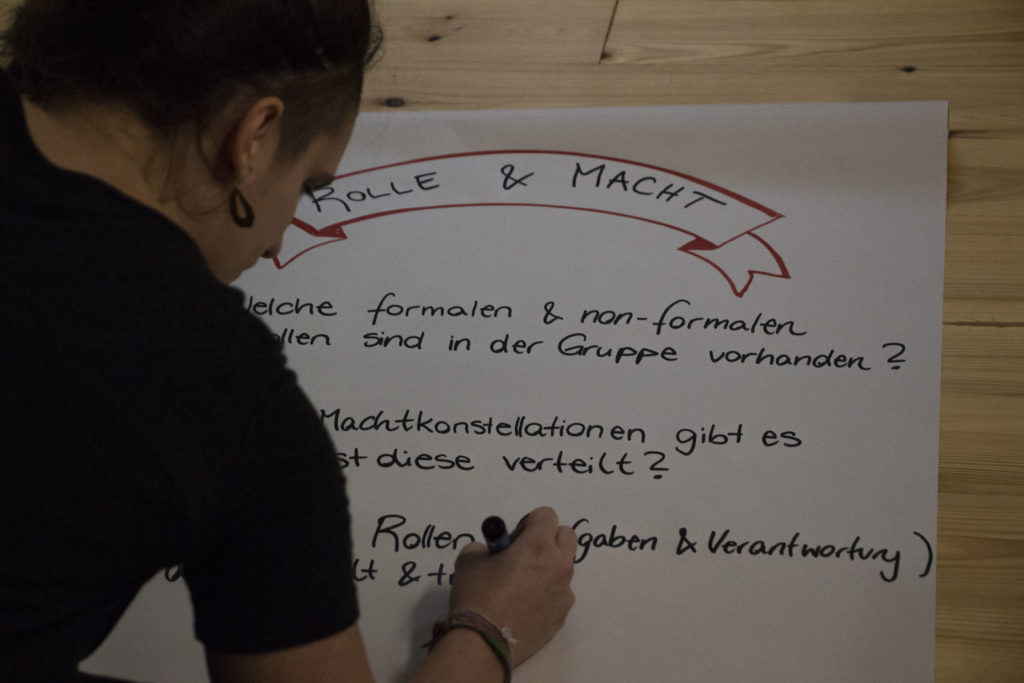 ROLLE & MACHT
elche formalen & non-formalen
llen sind in der Gruppe vorhanden?
Machtkonstellationen gibt es
st diese verteilt?
Rollen gaben & Verantwortung)
lt & t